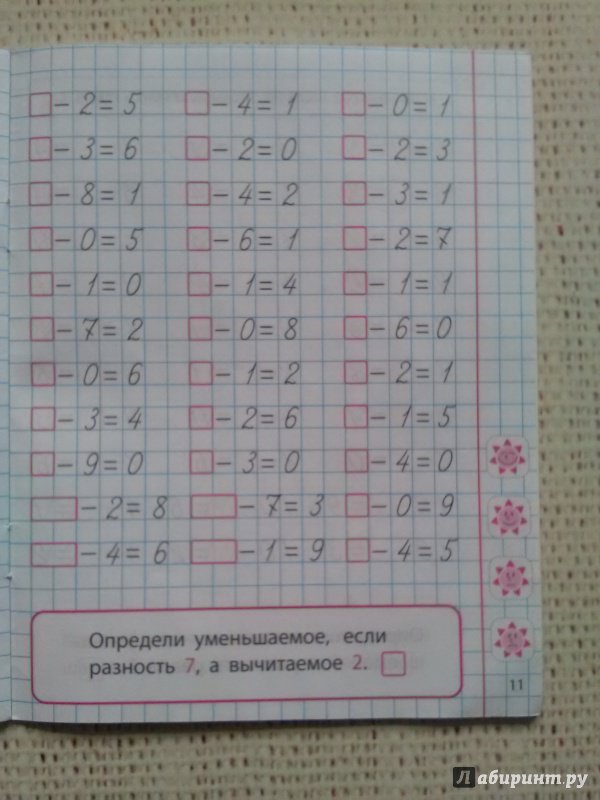 □ – 2 = 5 □ – 4 = 1 □ – 0 = 1
□ – 3 = 6 □ – 2 = 0 □ – 2 = 3
□ – 8 = 1 □ – 4 = 2 □ – 3 = 1
□ – 0 = 5 □ – 6 = 1 □ – 2 = 7
□ – 1 = 0 □ – 1 = 4 □ – 1 = 1
□ – 7 = 2 □ – 0 = 8 □ – 6 = 0
□ – 0 = 6 □ – 1 = 2 □ – 2 = 1
□ – 3 = 4 □ – 2 = 6 □ – 1 = 5
□ – 9 = 0 □ – 3 = 0 □ – 4 = 0
□ – 2 = 8 □ – 7 = 3 □ – 0 = 9
□ – 4 = 6 □ – 1 = 9 □ – 4 = 5
Определи уменьшаемое, если
разность 7, а вычитаемое 2. □
11
Лабиринт.ру